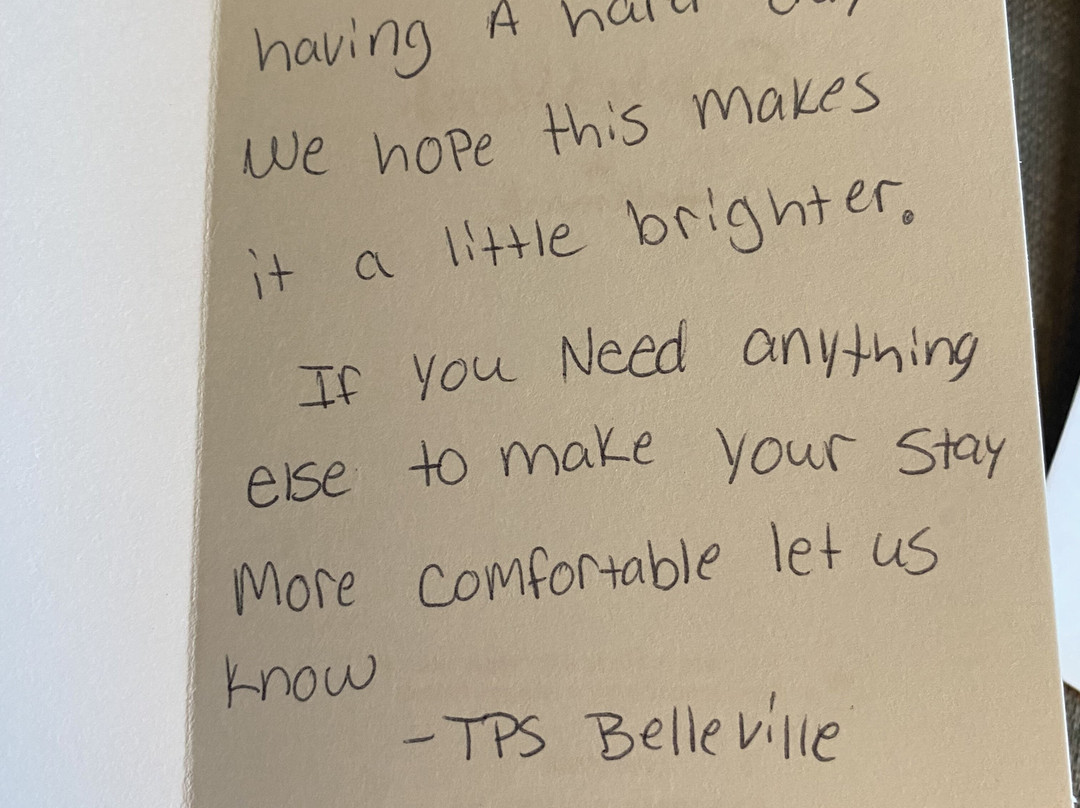 having A hard day
We hope this makes
it a little brighter.
If you Need anything
else to make your stay
More comfortable let us
know
-TPS Belleville